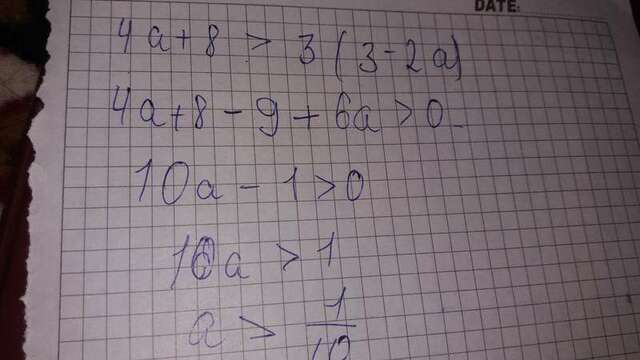 DATE:
4a + 8 > 3(3 - 2a)
4a + 8 - 9 + 6a > 0
10a - 1 > 0
10a > 1
a > 1/10